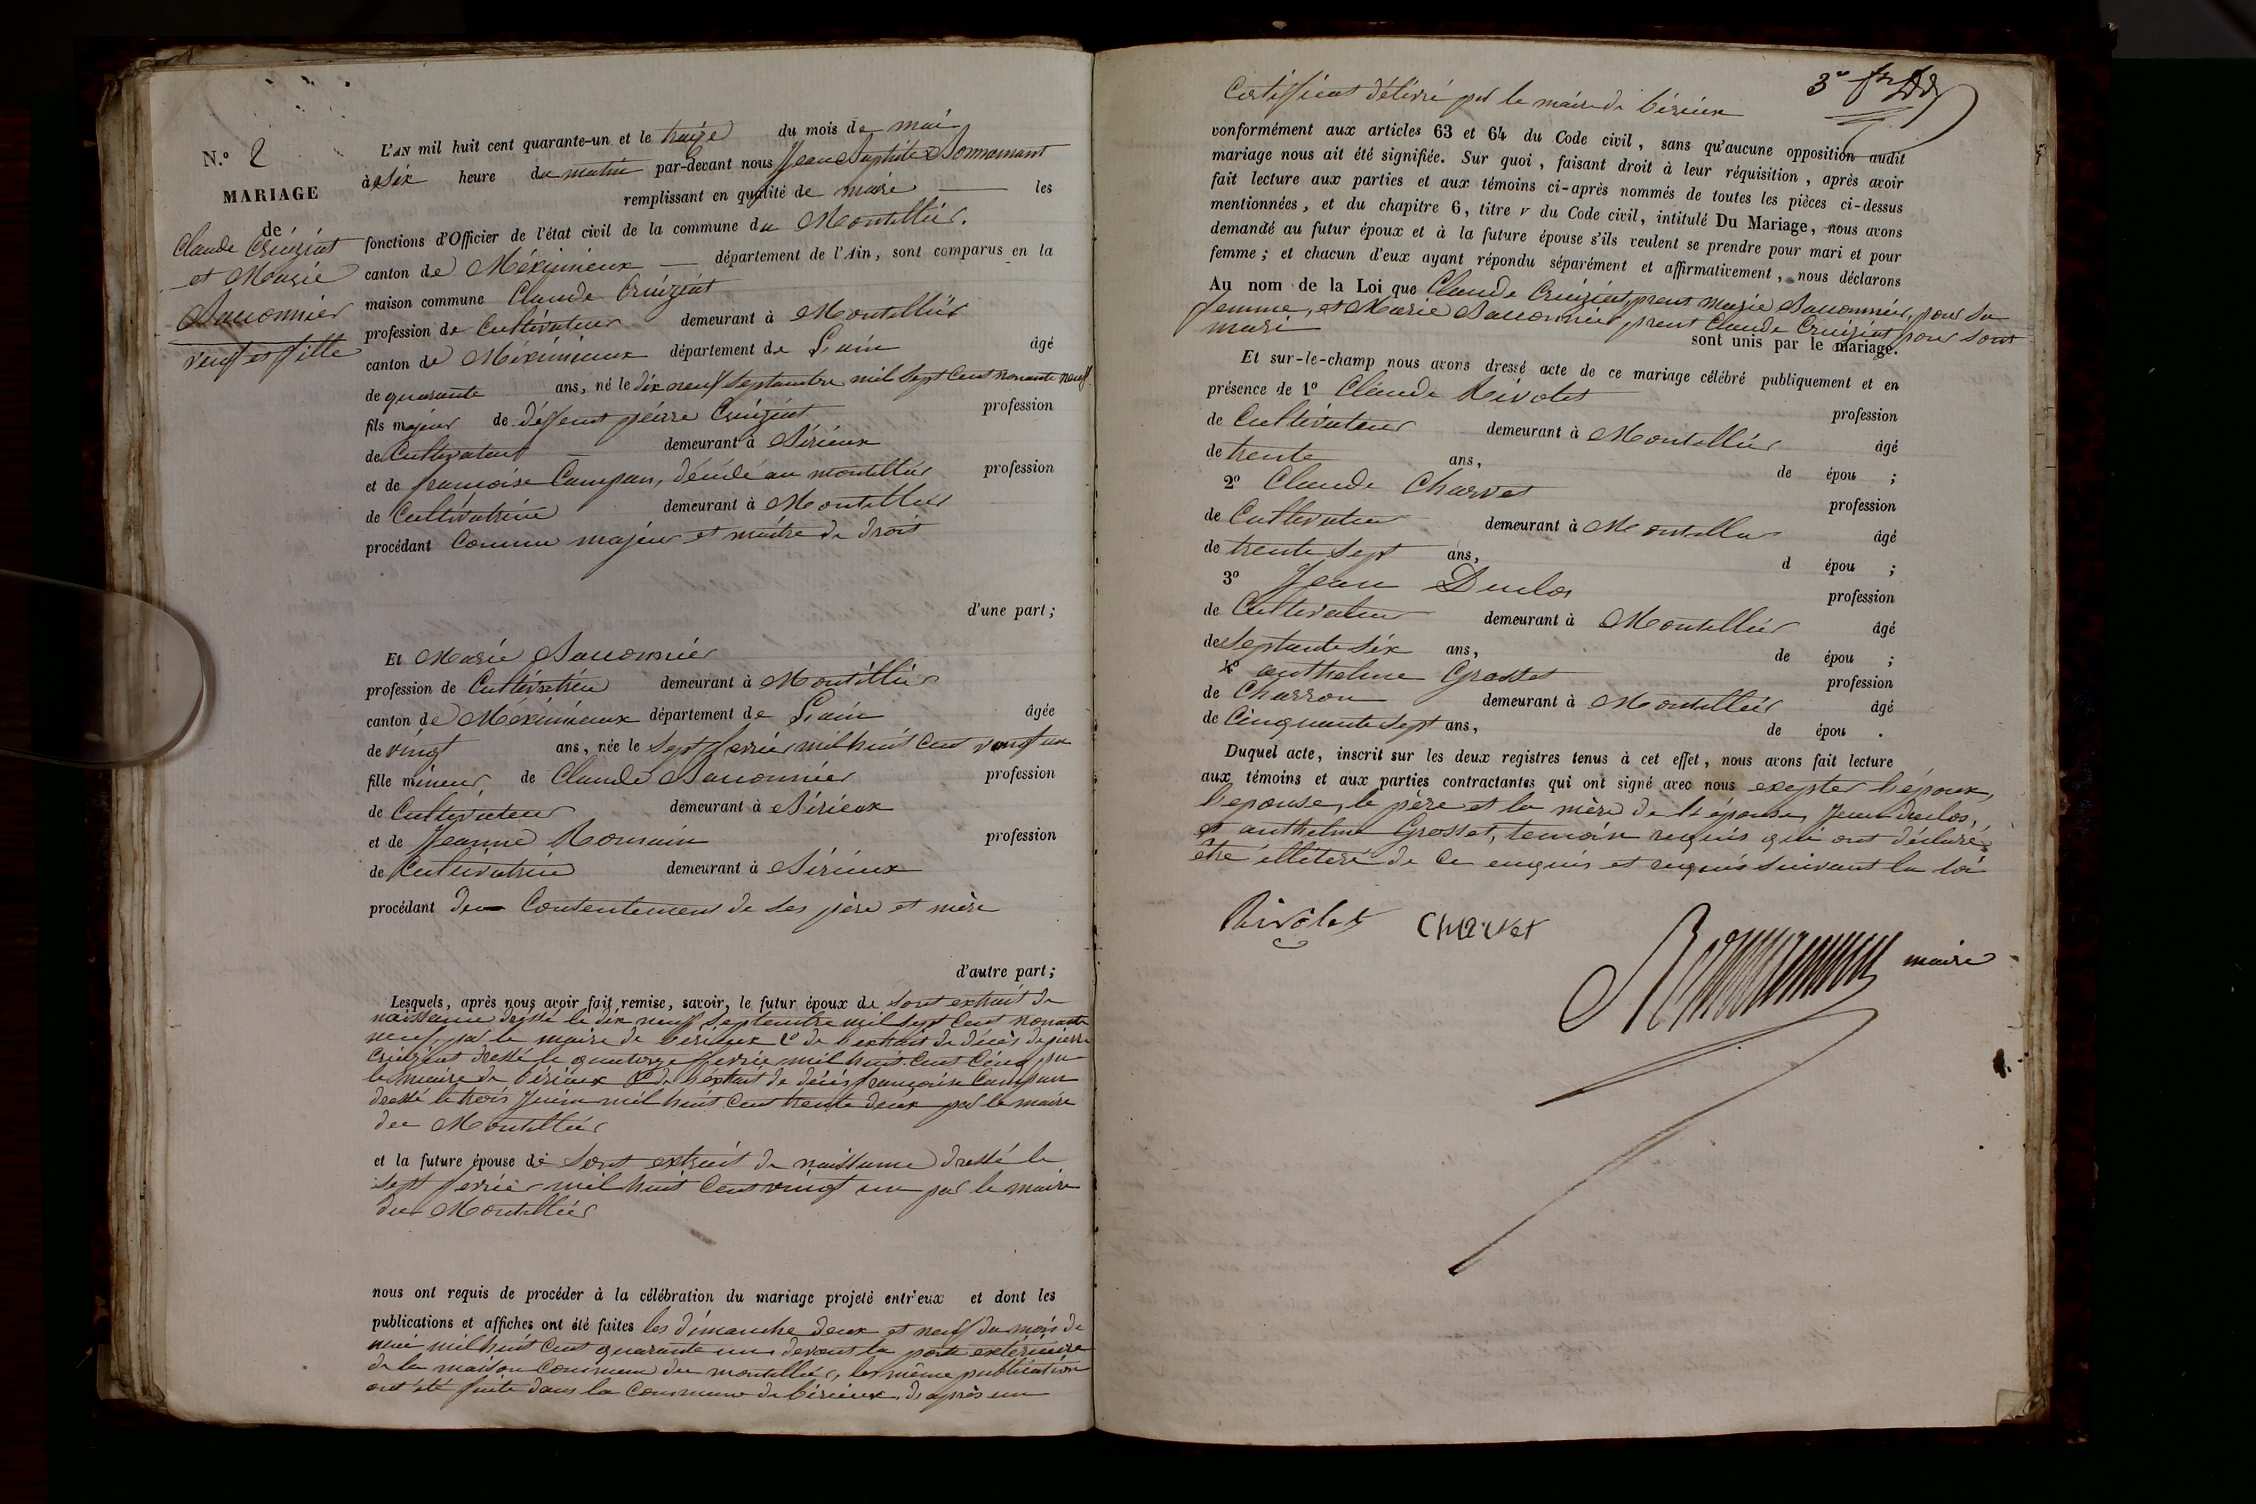 N.º 2
MARIAGE
de
Claude Cruiziat
et Marie
Sauconnier
veuf et fille
L'AN mil huit cent quarante-un et le traize du mois de mai
à six heure du matin par-devant nous Jean Baptiste Bonnamant
remplissant en qualité de maire les
fonctions d'Officier de l'état civil de la commune du Montellier.
canton de Méximieux département de l'Ain, sont comparus en la
maison commune Claude Cruiziat
profession de Cultivateur demeurant à Montellier
canton de Méximieux département de L'ain âgé
de quarante ans, né le dix neuf septembre mil sept cent nonante neuf
fils majeur de deffunt pierre Cruiziat profession
de Cultivateur demeurant à Birieux
et de francoise Campan, décédé au montellier profession
de Cultivatrice demeurant à Montellier
procédant comme majeur et maitre de droit
d'une part ;
Et Marie Sauconnier
profession de Cultivatrice demeurant à Montellier
canton de Méximieux département de L'ain âgée
de vingt ans, née le sept fevrier mil huit cent vingt un
fille mineur de Claude Sauconnier profession
de Cultivateur demeurant à Birieux
et de Jeanne Romain profession
de Cultivatrice demeurant à Birieux
procédant du Consentement de ses père et mère
d'autre part ;
Lesquels, après nous avoir fait remise, savoir, le futur époux de sont extrait de
naissance dressé le dix neuf septembre mil sept cent nonante
neuf par le maire de birieux 2º de l'extrait de décès de pierre
Cruiziat dressé le quatorze fevrier mil huit cent cinq par
le maire de birieux de l'extrait de décès francoise Campan
dressé le trois Juin mil huit cent trente deux par le maire
du Montellier
et la future épouse de sont extrait de naissance dressé le
sept fevrier mil huit cent vingt un par le maire
du Montellier
nous ont requis de procéder à la célébration du mariage projeté entr'eux et dont les
publications et affiches ont été faites les dimanche deux et neuf du mois de
mai mil huit cent quarante un devant la porte extérieure
de la maison Commune du montellier, les même publication
ont été faite dans la Commune de birieux, d'après un
3e
Certificat délivré par le maire de birieux
conformément aux articles 63 et 64 du Code civil, sans qu'aucune opposition audit
mariage nous ait été signifiée. Sur quoi, faisant droit à leur réquisition, après avoir
fait lecture aux parties et aux témoins ci-après nommés de toutes les pièces ci-dessus
mentionnées, et du chapitre 6, titre v du Code civil, intitulé Du Mariage, nous avons
demandé au futur époux et à la future épouse s'ils veulent se prendre pour mari et pour
femme ; et chacun d'eux ayant répondu séparément et affirmativement, nous déclarons
Au nom de la Loi que Claude Cruiziat, prent marie Sauconnier, pour sa
femme, et Marie Sauconnier, prent Claude Cruiziat pour sont
mari
sont unis par le mariage.
Et sur-le-champ nous avons dressé acte de ce mariage célébré publiquement et en
présence de 1º Claude Rivolet profession
de Cultivateur demeurant à Montellier âgé
de trente ans, de épou ;
2º Claude Charvet profession
de Cultivateur demeurant à Montellier âgé
de trente sept ans, d épou ;
3º Jean Duclos profession
de Cultivateur demeurant à Montellier âgé
de septante six ans, de épou ;
4º anthelme Grosset profession
de Charron demeurant à Montellier âgé
de Cinquante sept ans, de épou .
Duquel acte, inscrit sur les deux registres tenus à cet effet, nous avons fait lecture
aux témoins et aux parties contractantes qui ont signé avec nous exepter l'époux,
l'epouse, le père et la mère de l'épouse, Jean duclos,
et anthelme Grosset, temoin requis qui ont déclaré
etre illiteré de ce enquis et requis suivant la loi
Rivolet Charvet
maire